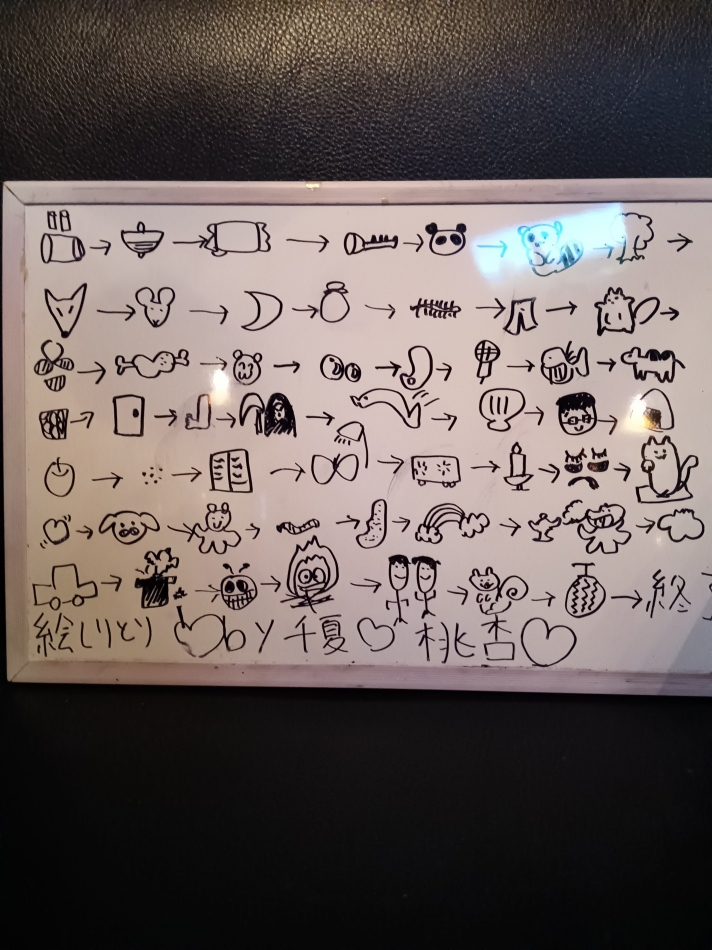 終了
絵しりとり♡by千夏♡桃杏♡